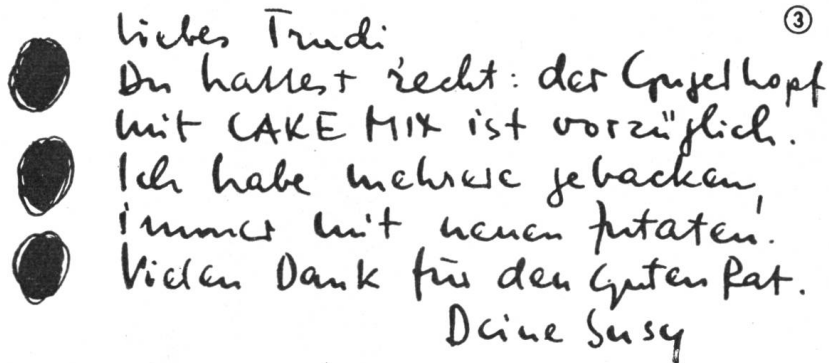 ③
Liebes Trudi,
Du hattest recht: der Gugelhopf
mit CAKE MIX ist vorzüglich.
Ich habe mehrere gebacken,
immer mit neuen Zutaten.
Vielen Dank für den guten Rat.
Deine Susy